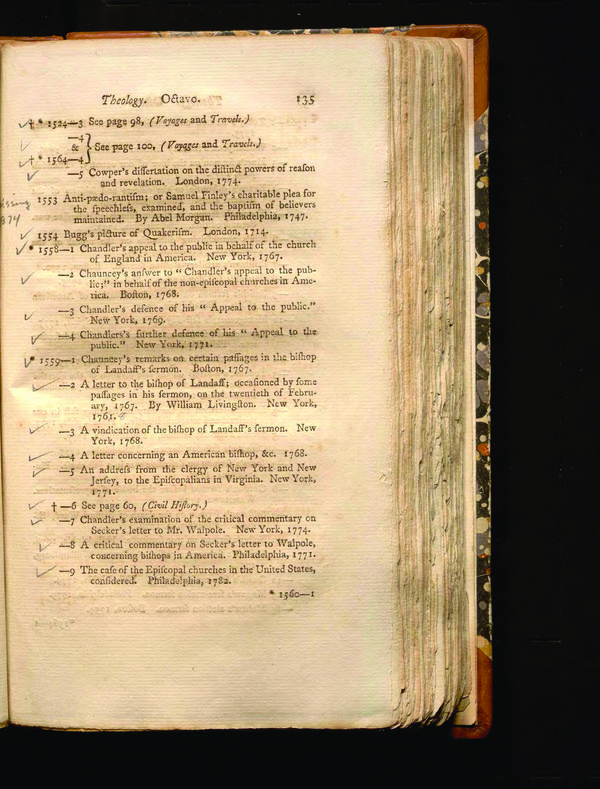 Theology. Octavo. 135
† * 1524—3 See page 98, (Voyages and Travels.)
—4
& } See page 100, (Voyages and Travels.)
† * 1564—4
—5 Cowper's diſſertation on the diſtinct powers of reaſon
and revelation. London, 1774.
miſſing
1874
1553 Anti-pædo-rantiſm; or Samuel Finley's charitable plea for
the ſpeechleſs, examined, and the baptiſm of believers
maintained. By Abel Morgan. Philadelphia, 1747.
1554 Bugg's picture of Quakeriſm. London, 1714.
* 1558—1 Chandler's appeal to the public in behalf of the church
of England in America. New York, 1767.
—2 Chauncey's anſwer to " Chandler's appeal to the pub-
lic;" in behalf of the non-epiſcopal churches in Ame-
rica. Boſton, 1768.
—3 Chandler's defence of his " Appeal to the public."
New York, 1769.
—4 Chandlers's further defence of his " Appeal to the
public." New York, 1771.
* 1559—1 Chauncey's remarks on certain paſſages in the biſhop
of Landaff's ſermon. Boſton, 1767.
—2 A letter to the biſhop of Landaff; occaſioned by ſome
paſſages in his ſermon, on the twentieth of Febru-
ary, 1767. By William Livingſton. New York,
1768.
—3 A vindication of the biſhop of Landaff's ſermon. New
York, 1768.
—4 A letter concerning an American biſhop, &c. 1768.
—5 An addreſs from the clergy of New York and New
Jerſey, to the Epiſcopalians in Virginia. New York,
1771.
† —6 See page 60, (Civil Hiſtory.)
—7 Chandler's examination of the critical commentary on
Secker's letter to Mr. Walpole. New York, 1774.
—8 A critical commentary on Secker's letter to Walpole,
concerning biſhops in America. Philadelphia, 1771.
—9 The caſe of the Epiſcopal churches in the United States,
conſidered. Philadelphia, 1782.
* 1560—1